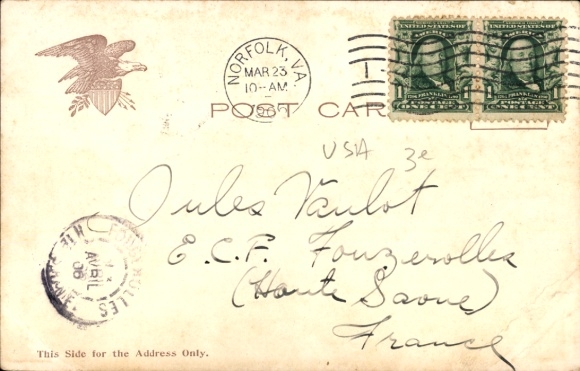 NORFOLK, VA.
MAR 23
10-AM
POST CAR
UNITED STATES OF
AMERICA
FRANKLIN
1 POSTAGE 1
ONE CENT
UNITED STATES OF
AMERICA
FRANKLIN
1 POSTAGE 1
ONE CENT
1
USA 3e
Jules Vaulot
E.C.F. Fouzerolles
(Haute Saone)
France
AVRIL
06
This Side for the Address Only.